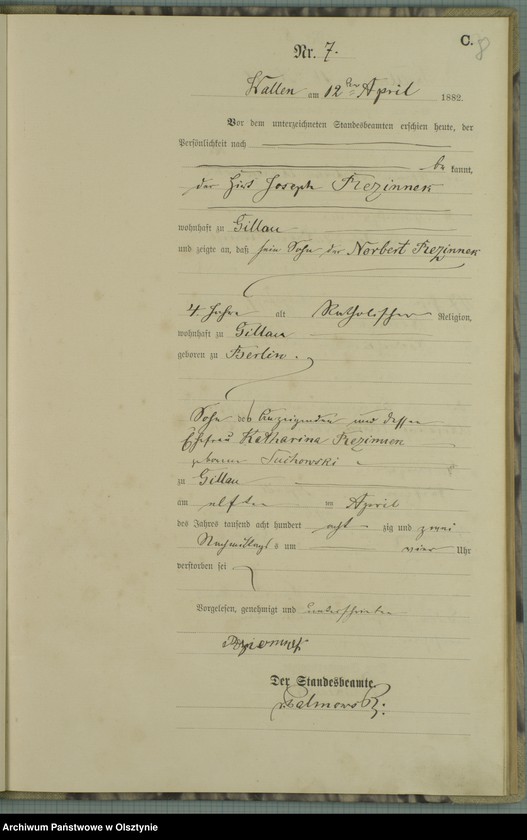 C. 8
Nr. 7.
Wallen am 12ten April 1882.
Vor dem unterzeichneten Standesbeamten erschien heute, der
Persönlichkeit nach
bekannt,
der Hirt Joseph
wohnhaft zu Gillau
und zeigte an, daß sein Sohn der Norbert
4 Jahre alt Katholischer Religion,
wohnhaft zu Gillau
geboren zu Berlin.
Sohn des Anzeigenden und dessen
Ehefrau Katharina
geborene Suchowski
zu Gillau
am elften im April
des Jahres tausend acht hundert acht zig und zwei
Nachmittags um vier Uhr
verstorben sei
Vorgelesen, genehmigt und unterschrieben
Der Standesbeamte.
Archiwum Państwowe w Olsztynie